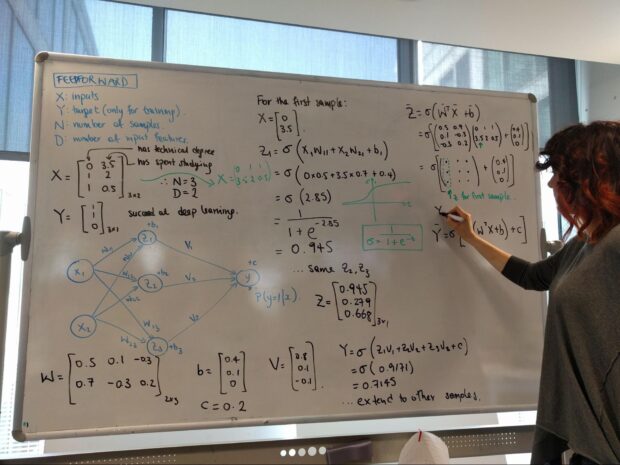 FEEDFORWARD
X: inputs
Y: target (only for training).
N: number of samples.
D: number of input features.
has technical degree
has spent studying
X = [0 3.5; 1 2; 1 0.5] 3x2
X = [0 1 1; 3.5 2 0.5]
∴ N = 3
∴ D = 2
Y = [1; 1; 0] 3x1
succeed at deep learning.
X1 X2
Z1 +b1
Z2 +b2
Z3 +b3
W11 W12 W13
V1 V2
y +c
P(y=1|x)
W = [0.5 0.1 -0.3; 0.7 -0.3 0.2] 2x3
b = [0.4; 0.1; 0]
V = [0.8; 0.1; -0.1]
c = 0.2
For the first sample:
X = [0; 3.5]
Z1 = σ(X1W11 + X2W21 + b1)
= σ(0x0.5 + 3.5x0.7 + 0.4)
= σ(2.85)
= 1 / 1 + e^-2.85
= 0.945
σ = 1 / 1 + e^-x
... same Z2, Z3
Z = [0.945; 0.279; 0.668] 3x1
Y = σ(Z1V1 + Z2V2 + Z3V3 + c)
= σ(0.9171)
= 0.7145
... extend to other samples.
Z = σ(W^T X + b)
= σ([0.5 0.7; 0.1 -0.3; -0.3 0.2] [0 1 1; 3.5 2 0.5] + [0.4; 0.1; 0])
z for first sample.
Y = σ[ (W^T X + b) + c]